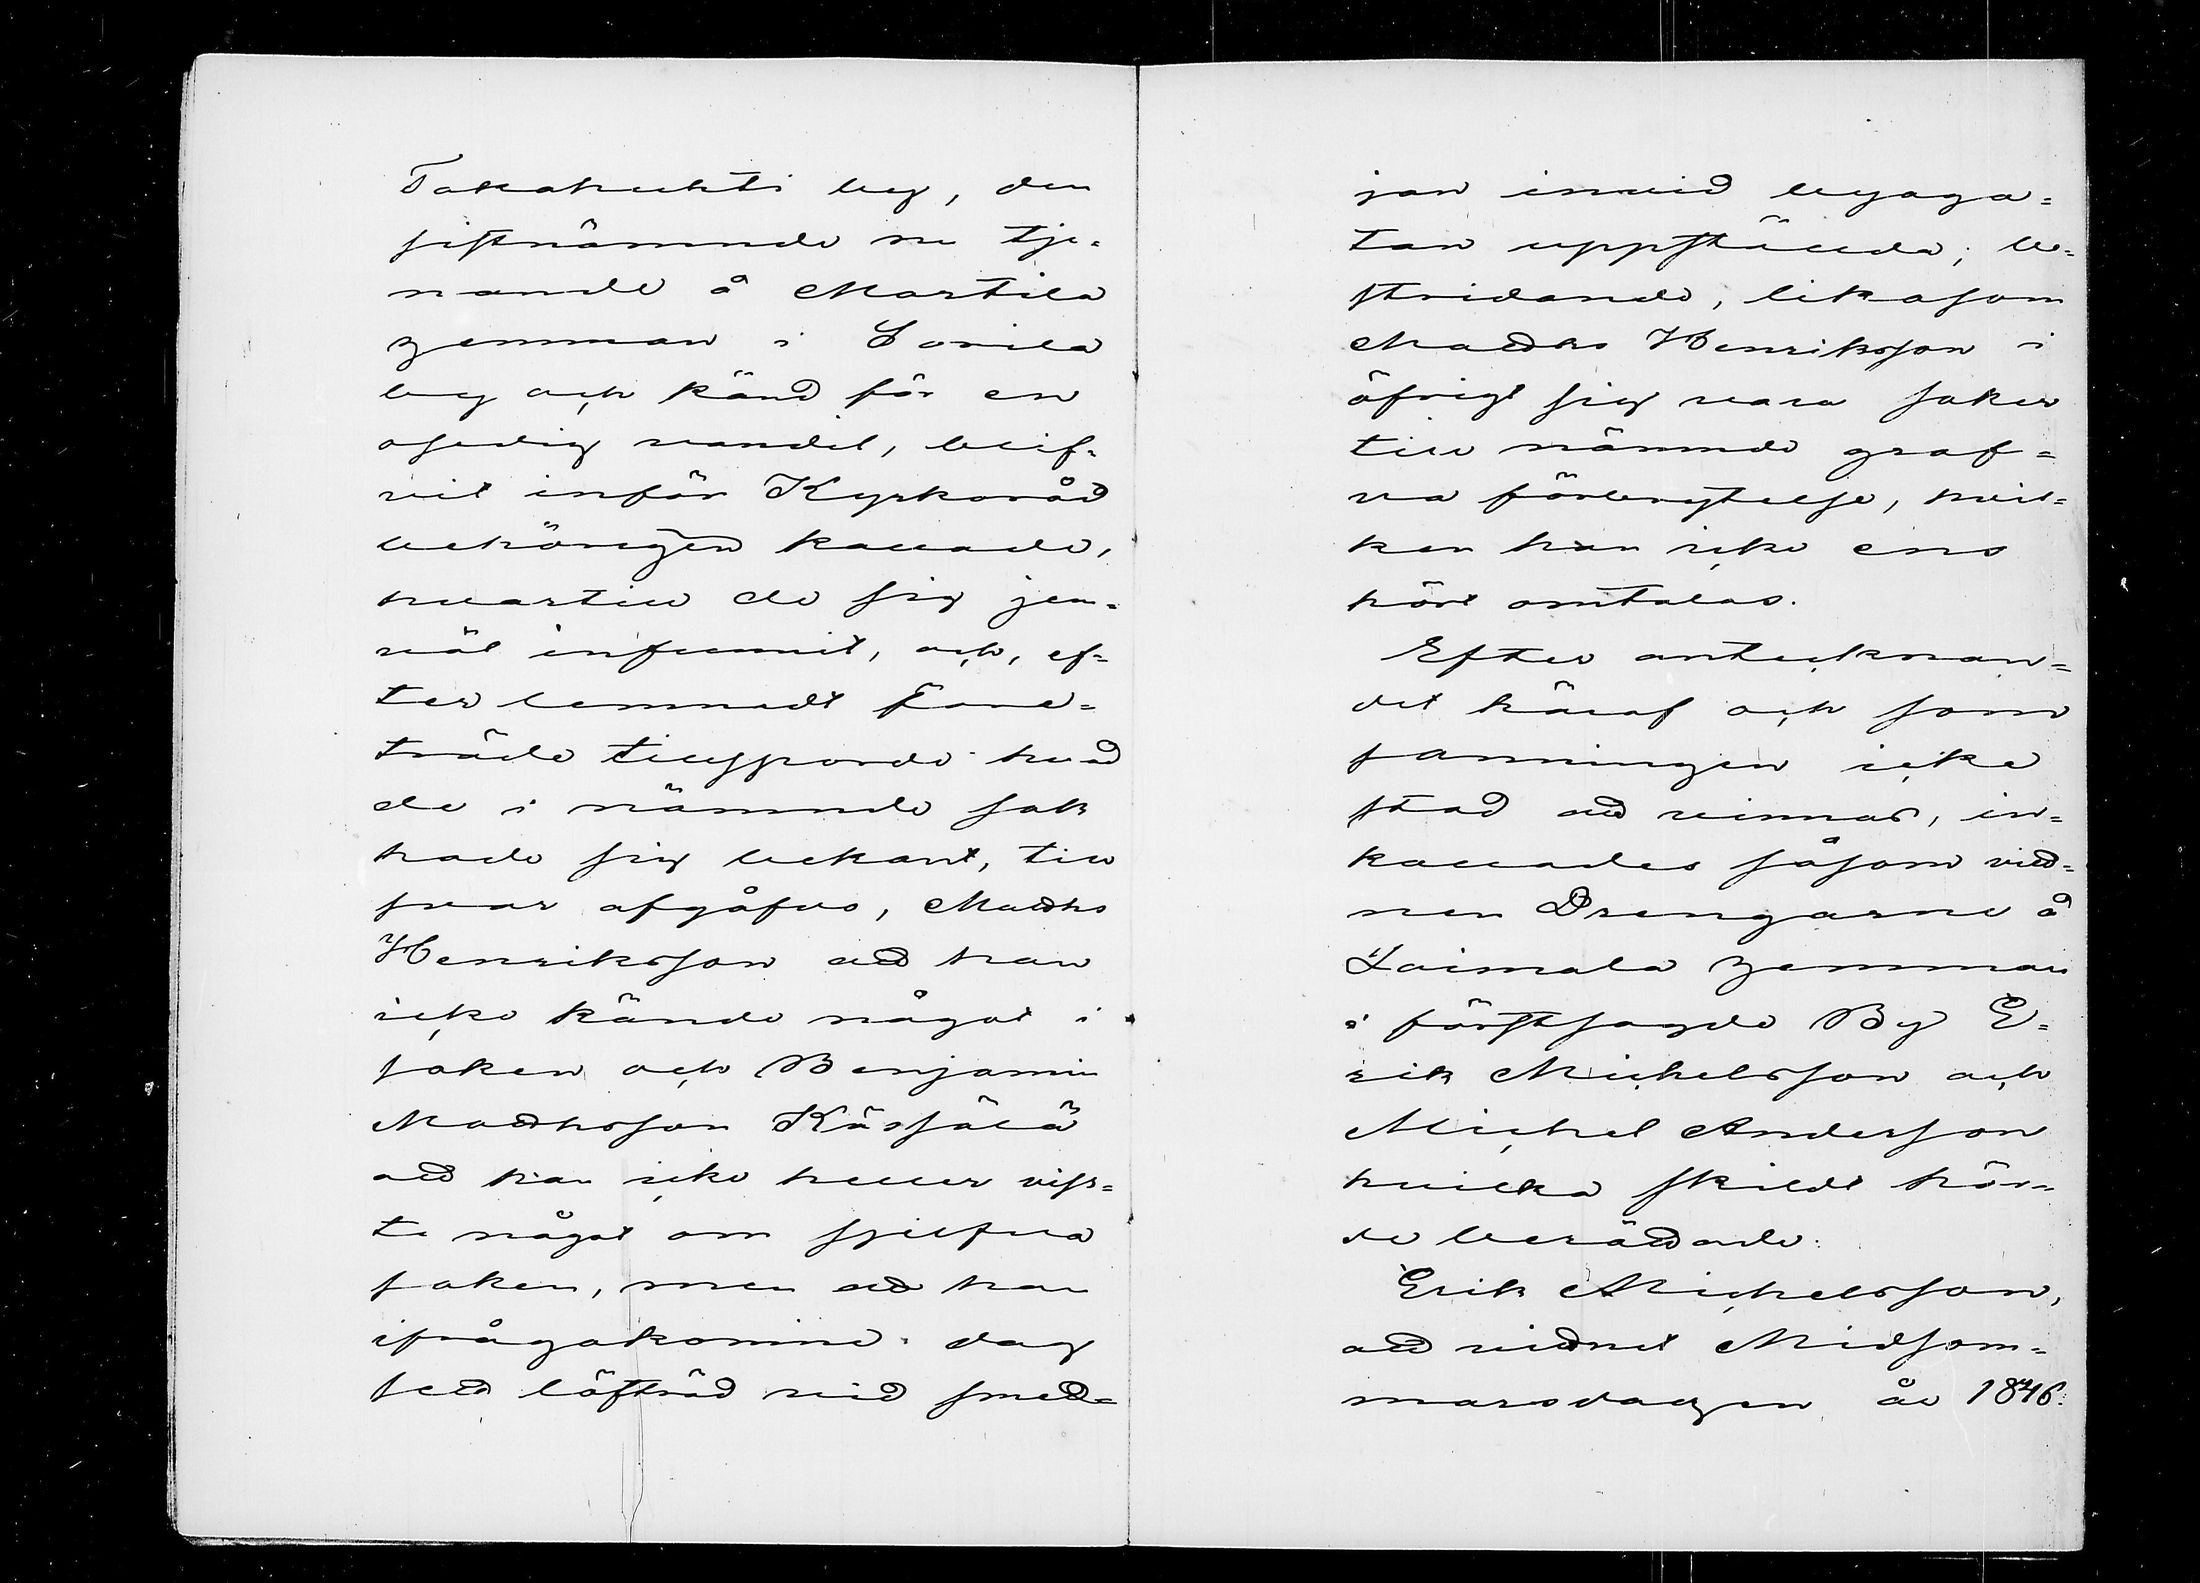 Takahuhti by, den
sistnämnde nu tje-
nande å Martila
hemman i Sorila
by och känd för en
osedig vandel, blif-
vit inför Kyrkoråd
behörigen kallade,
hvartill de sig jem-
väl infunnit, och, ef-
ter lemnadt före-
träde tillsporde hvad
de i nämnde sak
hade sig bekant, till
svar afgåfvo, Matths
Henriksson att han
icke kände något i
saken och Benjamin
Matthsson Kässälä
att han icke heller viss-
te något om sjelfva
saken, men att han
ifrågakomne dag
sett löfträd vid smed-
jan invid byaga-
tan uppställda; be-
stridande, likasom
Matths Henriksson i
öfrigt sig vara saker
till nämnde graf-
va förbrytelse, hvil-
ken han icke ens
hört omtalas.
Efter antecknan-
det häraf och som
sanningen icke
stod att vinnas, in-
kallades såsom vitt-
nen Drengarne å
Laimala hemman
i förstsagde By E-
rik Michelsson och
Michel Andersson
hvilka skildt hör-
de berättade:
Erik Michelsson,
att vittnet Midsom-
marsdagen år 1846